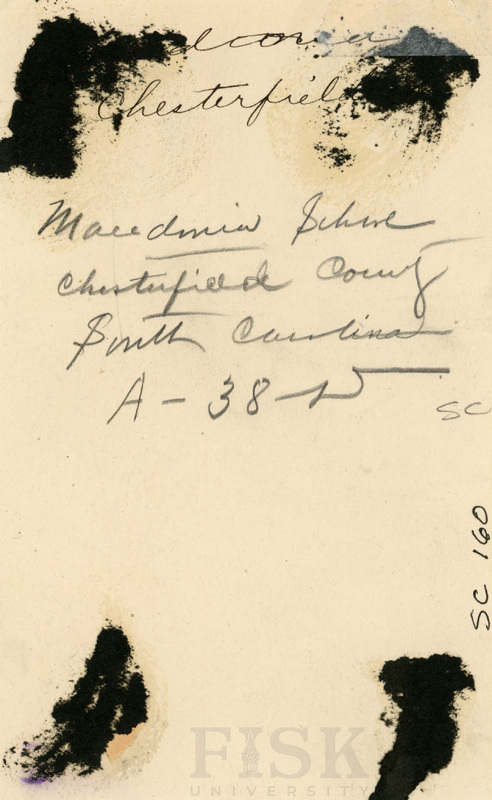 Chesterfiel
Macedonia School
Chesterfield County
South Carolina
A - 38 -
SC
SC 160
FISK
UNIVERSITY